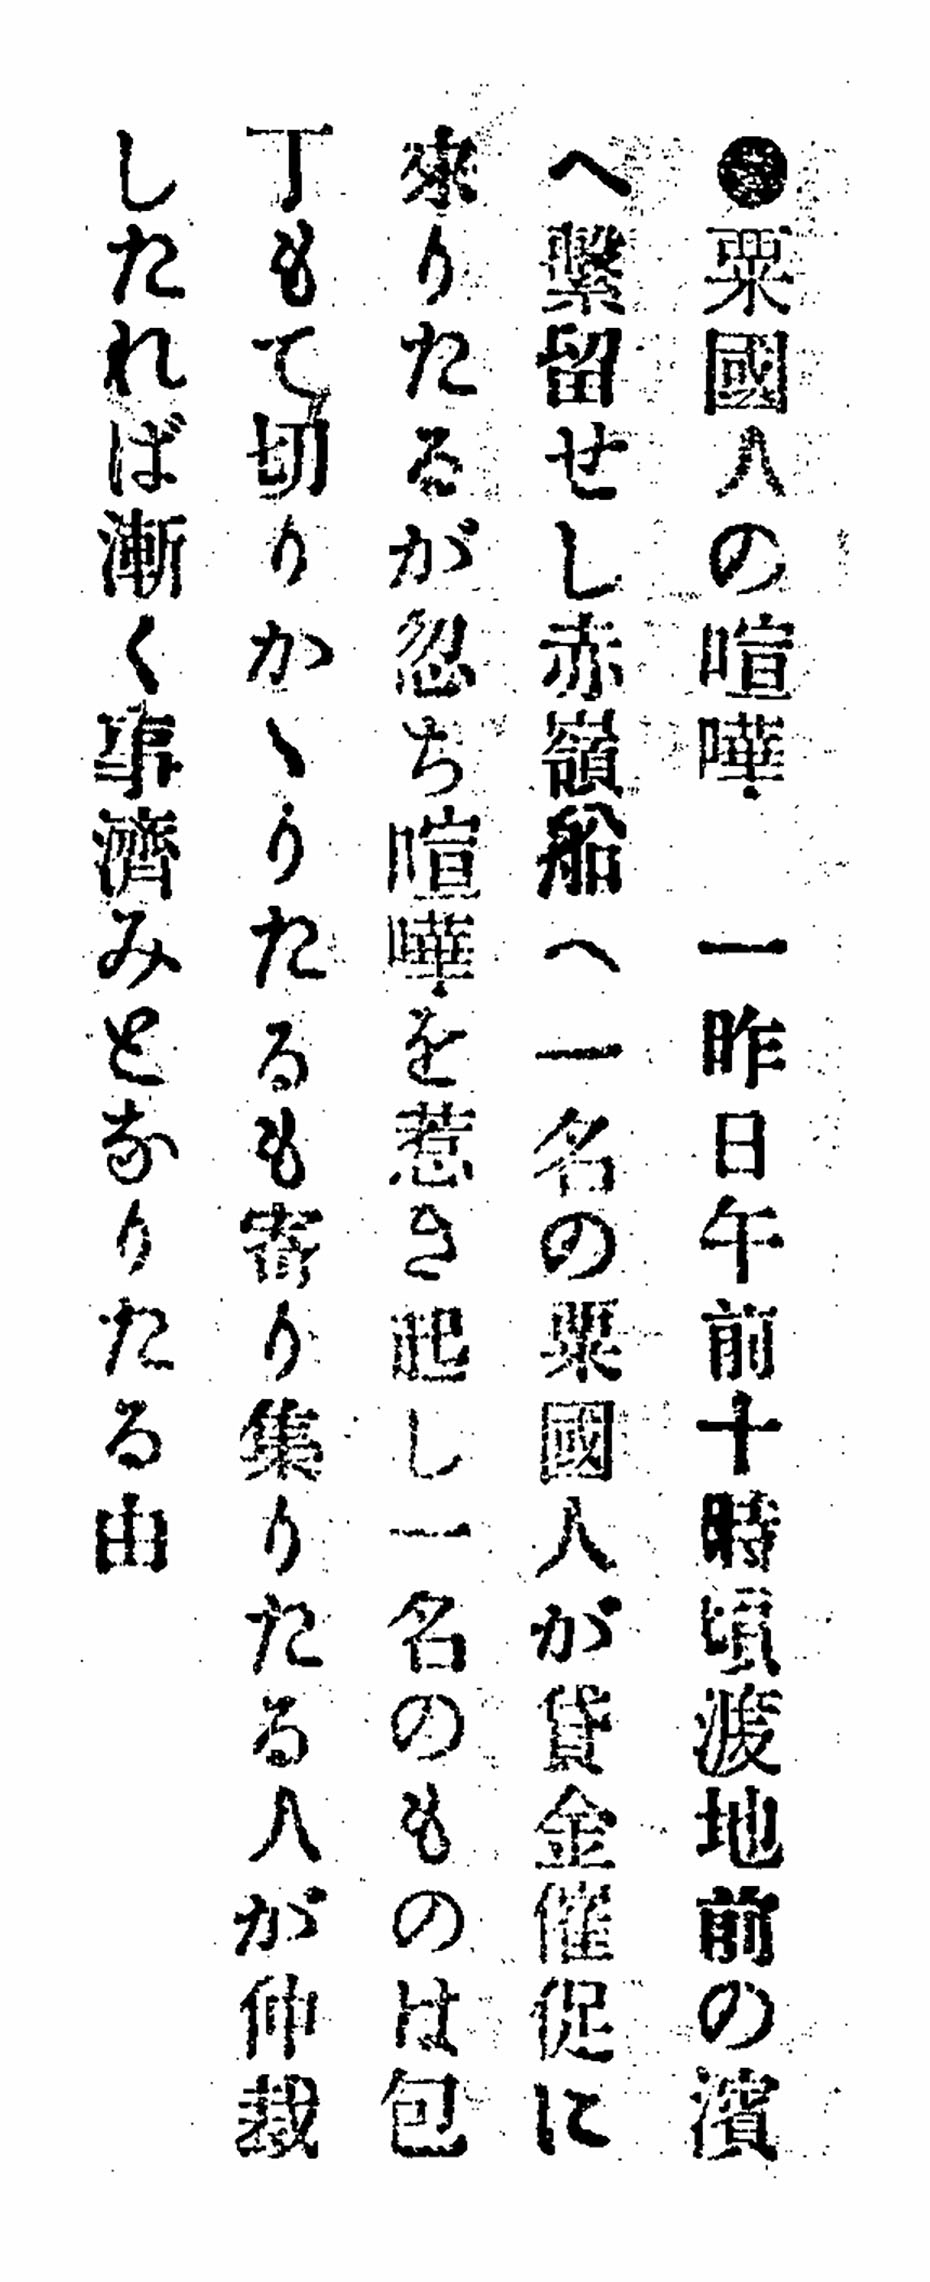 ●粟國人の喧嘩　一昨日午前十時頃渡地前の濱
へ繋留せし赤嶺船へ一名の粟國人が貸金催促に
來りたるが忽ち喧嘩を惹き起し一名のものは包
丁もて切りかゝりたるも寄り集りたる人が仲裁
したれば漸く事濟みとなりたる由